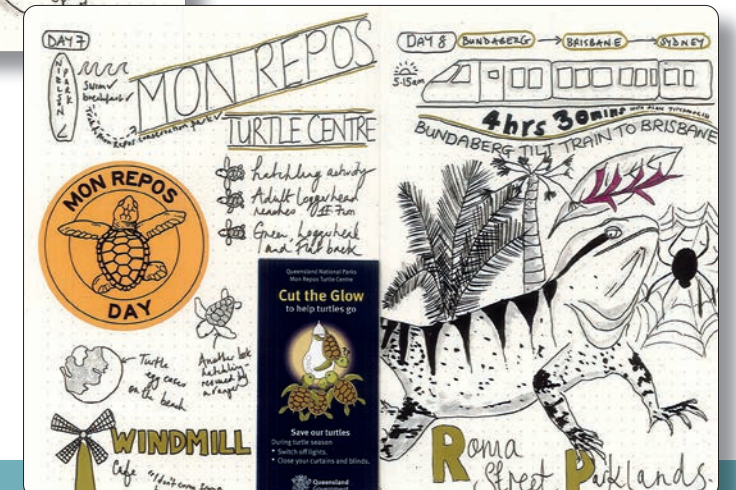 DAY 7
NIELSON PARK
Swim
breakfast
MON REPOS
TURTLE CENTRE
hatchling activity
Adult loggerhead
reaches
Green, loggerhead
and flat back
MON REPOS
DAY
Turtle
egg cases
on the beach
Another
hatchling
rescued by
a ranger
WINDMILL
Cafe
Queensland National Parks
Mon Repos Turtle Centre
Cut the Glow
to help turtles go
Save our turtles
During turtle season
• Switch off lights.
• Close your curtains and blinds.
Queensland
Government
DAY 8 BUNDABERG → BRISBANE → SYDNEY
5.15am
4hrs 30mins
BUNDABERG TILT TRAIN TO BRISBANE
Roma
Street Parklands.